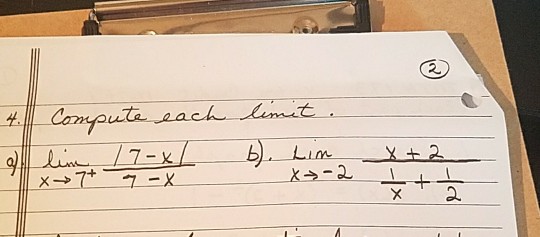 2
4. Compute each limit.
a) lim x→7+ |7-x| / 7-x b). Lim x→-2 x+2 / 1/x + 1/2